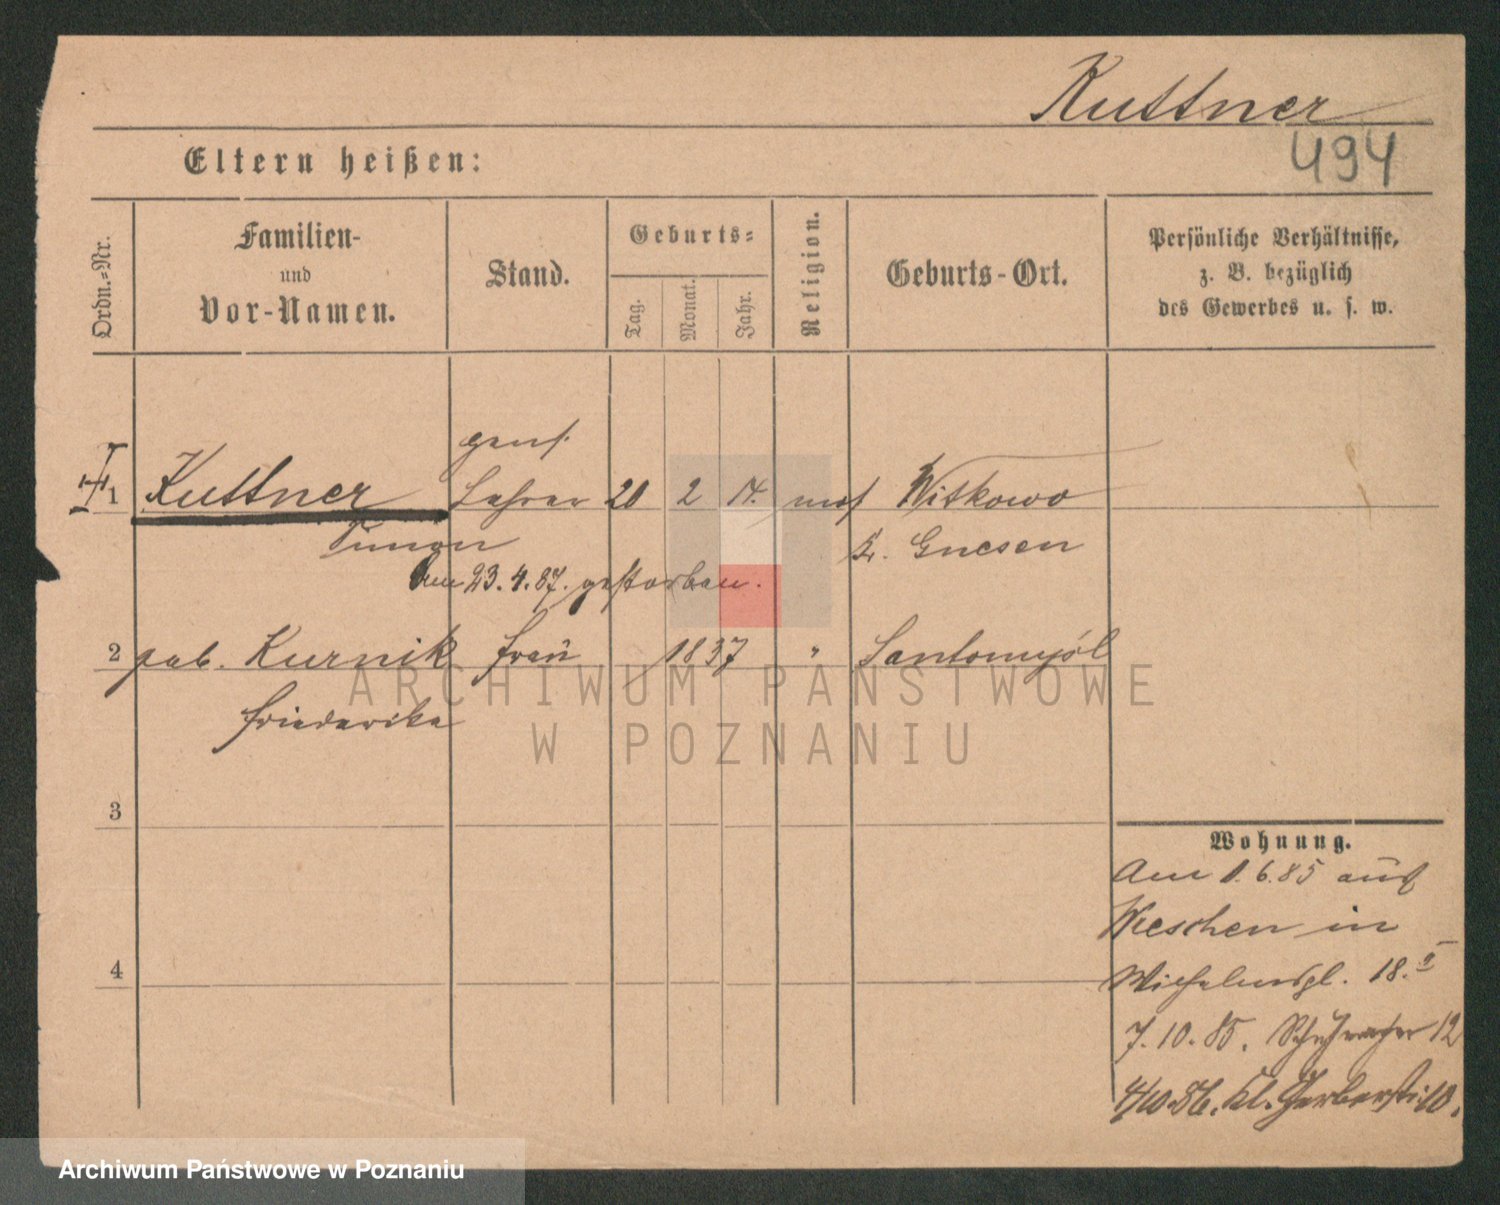 Kuttner
494
Eltern heißen:
Ordn.-Nr.
Familien-
und
Vor-Namen.
Stand.
Geburts-
Tag.
Monat.
Jahr.
Religion.
Geburts-Ort.
Persönliche Verhältnisse,
z. B. bezüglich
des Gewerbes u. s. w.
pens.
1 Kuttner Lehrer 20 2 14. mos Witkowo
Simon Kr. Gnesen
Am 23.4.87. gestorben.
2 geb. Kurnik Frau 1837 " Santomysl
Friederike
3
4
Wohnung.
Am 1.6.85 aus
Wreschen in
Wilhelmspl. 18.
7.10.85. 12
4/10.86. Kl. Gerberstr. 10.
ARCHIWUM PAŃSTWOWE
W POZNANIU
Archiwum Państwowe w Poznaniu